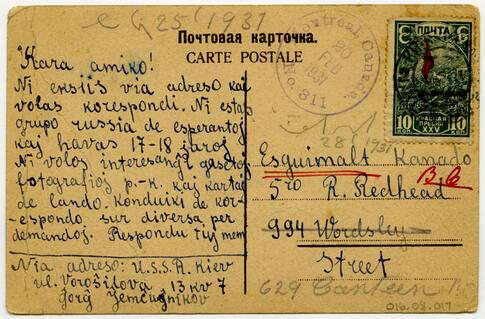 25/1931
Почтовая карточка.
CARTE POSTALE
Montreal, Canada.
20
FEB
1931
No. 811
ПОЧТА
10 КОП. КРАСНАЯ ПРЕСНЯ XXV 10 КОП.
Kara amiko!
Ni eksiis via adreso kaj
volas korespondi. Ni estas
grupo russia de esperantoj
kaj havas 17-18 jaroj.
Ni volos interesanĝi gasetoj
fotografioj p.-k. kaj kartoj
de lando. Konduiki de kor-
espondo sur diversa per
demandoj. Respondu tuj mem
Nia adreso: U.S.S.R. Kiev
ul. Vorošilova, 13 kv 7
Jorg Jemĉugnikov
28 1931
Esguimalt Kanado
B.C
5ro R. Redhead
994 Wordsley
Street
629 Canteen
016.08.017